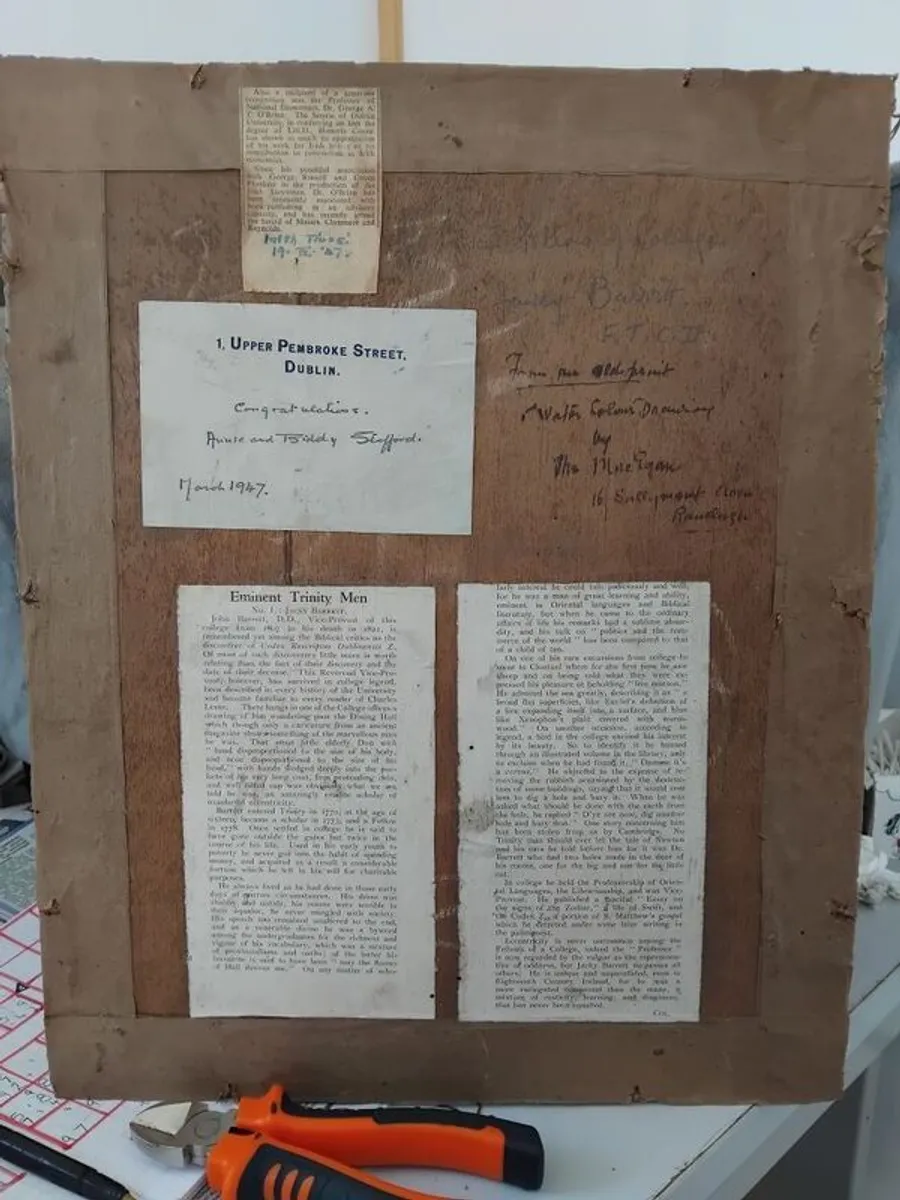 Also a recipient of a
was the Professor of
National Economics, Dr. George A.
T. O'Brien. The Senate of Dublin
University, in conferring on him the
degree of Litt.D., Honoris Causa,
has shown so much
of his work for Irish
contribution to
economics.
Since his youthful association
with George Russell and
Plunkett in the production of the
Irish Statesman, Dr. O'Brien has
been
in an advisory
capacity, and has recently joined
the board of Messrs.
Reynolds.
Irish Times
'47.
Fellow of College
Jacky Barrett.
F.T.C.D.
From an old print
Water Colour Drawing
by
The MacEgan
16
1, UPPER PEMBROKE STREET,
DUBLIN.
Congratulations.
Annie and Biddy Stafford.
March 1947.
Eminent Trinity Men
No. 1.: JACKY BARRETT.
John Barrett, D.D., Vice-Provost of this
college from 1807 to his death in 1821, is
remembered yet among the Biblical critics as the
discoverer of Codex Rescriptus Dublinensis Z.
Of most of such discoverers little more is worth
relating than the fact of their discovery and the
date of their decease. This Reverend Vice-Pro-
vost, however, has survived in college legend,
been described in every history of the University
and become familiar to every reader of Charles
Lever. There hangs in one of the College offices a
drawing of him wandering past the Dining Hall
which though only a caricature from an ancient
magazine shows something of the marvellous man
he was. That stout little elderly Don with
"head disproportioned to the size of his body,
and nose disproportioned to the size of his
head," with hands plunged deeply into the poc-
kets of his very long coat, firm protruding chin,
and well tilted cap was obviously what we are
told he was, an amazingly erudite scholar of
wonderful eccentricity.
Barrett entered Trinity in 1770, at the age of
sixteen, became a scholar in 1773, and a Fellow
in 1778. Once settled in college he is said to
have gone outside the gates but twice in the
course of his life. Used in his early youth to
poverty he never got into the habit of spending
money, and acquired as a result a considerable
fortune which he left in his will for charitable
purposes.
He always lived as he had done in those early
days of narrow circumstances. His dress was
shabby and untidy, his rooms were terrible to
their equator, he never mingled with society.
His speech too remained unaltered to the end,
and as a venerable divine he was a byword
among the undergraduates for the richness and
vigour of his vocabulary, which was a mixture
of provincialisms and oaths; of the latter his
favourite is said to have been "may the
of Hell devour me." On any matter of
he could talk judiciously and well,
for he was a man of great learning and ability,
eminent in Oriental languages and Biblical
literature, but when he came to the ordinary
affairs of life his remarks had a sublime absur-
dity, and his talk on "politics and the
of the world" has been compared to that
of a child of ten.
On one of his rare excursions from college he
went to Clontarf when for the first time he saw
sheep and on being told what they were ex-
pressed his pleasure at beholding "live mutton."
He admired the sea greatly, describing it as "a
broad flat superficies, like Euclid's definition of
a line expanding itself into a surface, and blue
like Xenophon's plain covered with worm-
wood." On another occasion, according to
legend, a bird in the college excited his interest
by its beauty. So to identify it he hunted
through an illustrated volume in the library, only
to exclaim when he had found it, "Damme it's
a crow." He objected to the expense of re-
moving the rubbish occasioned by the
of some buildings, saying that it would cost
less to dig a hole and bury it. When he was
asked what should be done with the earth from
the hole, he replied "D'ye see now, dig another
hole and bury that." One story concerning him
has been stolen from us by Cambridge. No
Trinity man should ever let the tale of Newton
and his cats be told before him for it was Dr.
Barrett who had two holes made in the door of
his rooms, one for the big and one for the little
cat.
In college he held the Professorship of Orien-
tal Languages, the Librarianship, and was Vice-
Provost. He published a fanciful "Essay on
the signs of the Zodiac," a life of Swift, and
the Codex Z, a portion of S. Matthew's gospel
which he detected under some later writing in
the palimpsest.
Eccentricity is never uncommon among the
Fellows of a College, indeed the "Professor"
is now regarded by the vulgar as the representa-
tive of oddness, but Jacky Barrett surpasses all
others. He is unique and unparalleled, even in
Eighteenth Century Ireland, for he was a
more variegated
mixture of rusticity, learning, and
that has never been equalled.